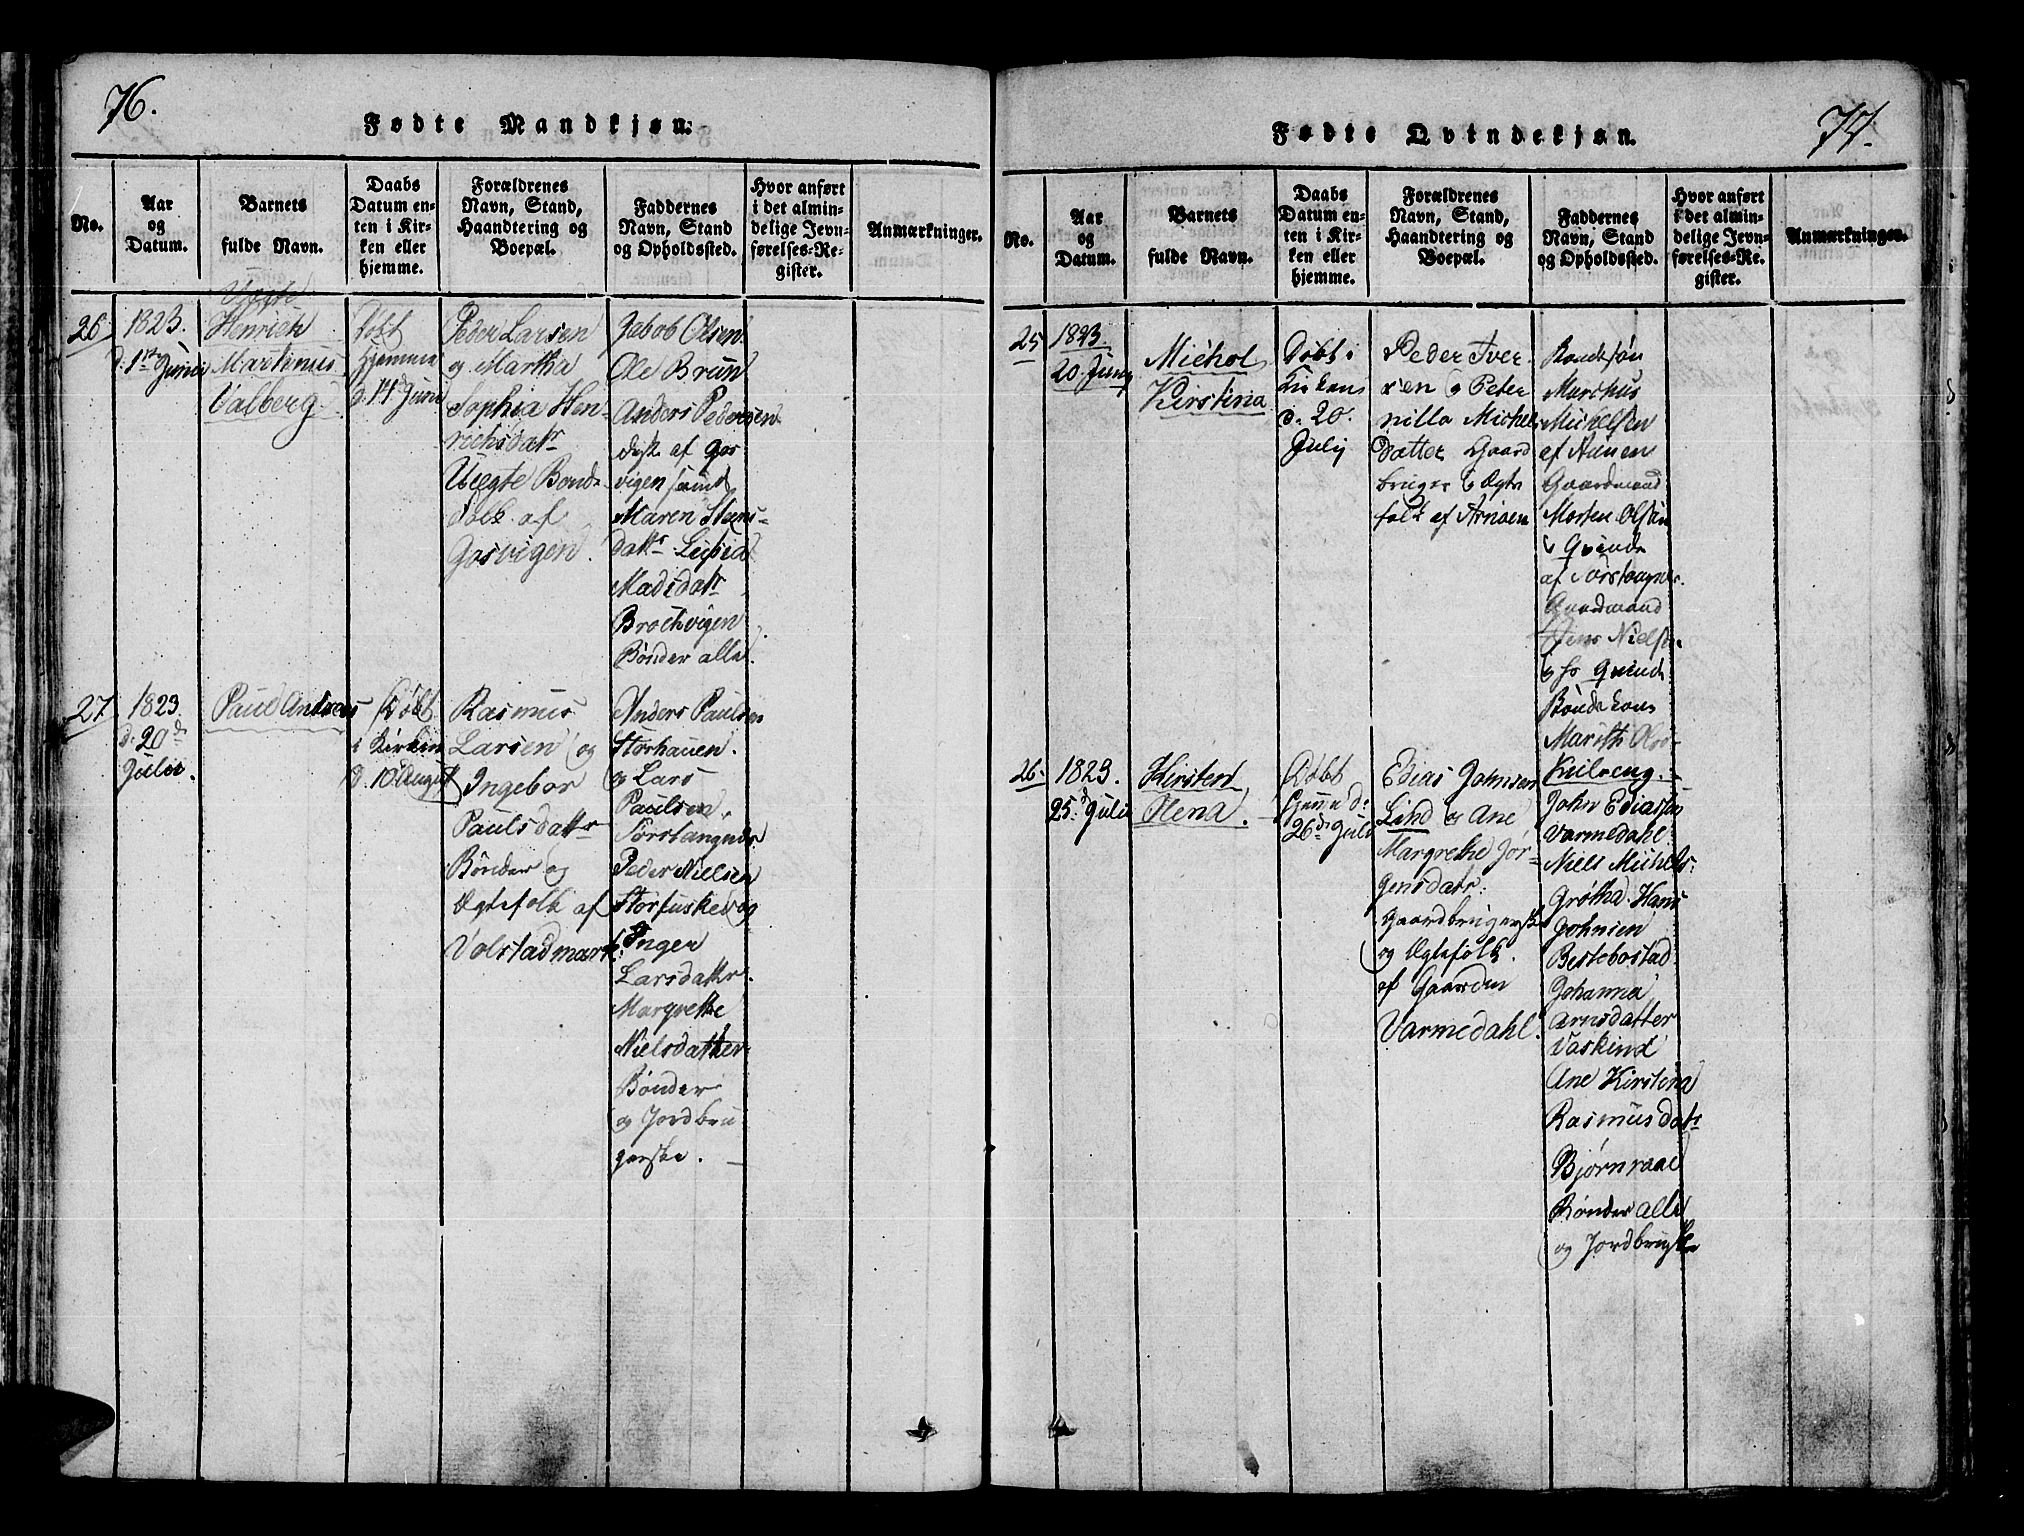 76.
Fødte Mandkjøn.
No.
Aar
og
Datum.
Barnets
fulde Navn.
Daabs
Datum en-
ten i Kir-
ken eller
hjemme.
Forældrenes
Navn, Stand,
Haandtering og
Boepæl.
Faddernes
Navn, Stand
og Opholdssted.
Hvor anført
i det almin-
delige Jevn-
førelses-Re-
gister.
Anmærkninger.
26
1823.
d. 1ste Junii
Uægte
Henrich
Martinus
Valberg.
Døbt
hjemme
d. 14 Junii
Peder Larsen
og Martha
Sophia Hen-
richsdatr
Uægte Bonde
folk af
Gosvigen.
Jakob Olsen
Ole Brun
Anders Pedersen
af Gos-
vigen samt
Maren
datr
Madsdatr
Brochvigen
Bønder alle.
27
1823.
d. 20de
Julii.
Paul Andreas
Døbt
i Kirken
d. 10 August
Rasmus
Larsen og
Ingebor
Paulsdatr
Bønder og
Ægtefolk af
Valstadmark.
Anders Paulsen
Storhauen.
og Lars
Paulsen
Torstangnes
Peder Nielsen
Storfuske og
Inger
Larsdattr.
Margrethe
Nielsdatter
Bønder
og Jordbru
gerske.
77.
Fødte Qvindekjøn.
No.
Aar
og
Datum.
Barnets
fulde Navn.
Daabs
Datum en-
ten i Kir-
ken eller
hjemme.
Forældrenes
Navn, Stand,
Haandtering og
Boepæl.
Faddernes
Navn, Stand
og Opholdssted.
Hvor anført
i det almin-
delige Jevn-
førelses-Re-
gister.
Anmærkninger.
25
1823
20. Juny
Michol
Kirstina
Døbt i
Kirken
d. 20.
Julij
Peder Iver
sen og Peter
nilla Michels
Datter Gaard
bruger og Ægte
folk af Arnøen
Bondesøn
Marthus
Michelsen
af
Gaardmand
Morten Olsen
og Qvinde
af Torstangnes.
Gaardmand
Jens Nielsen
og hs Qvinde
Bonde kone
Marith Ols-
26.
1823.
25. d Julii
Kirsten
Elena.
Døbt
hjemme d.
26de Julii
Edias Johnsen
Lind og Ane
Margrethe Jør-
gensdatr.
Gaardbrugerske
og Ægtefolk.
af Gaarden
Varmedahl.
John Ediassen
Varmedahl.
Niels Michels.
Grøtha. Hans
Johnsen
Bestebostad
Johanna
Arnsdatter
Vaskind
Ane Kirstina
Rasmus datr
Bjørnraae
Bønder alle
og Jordbrugske